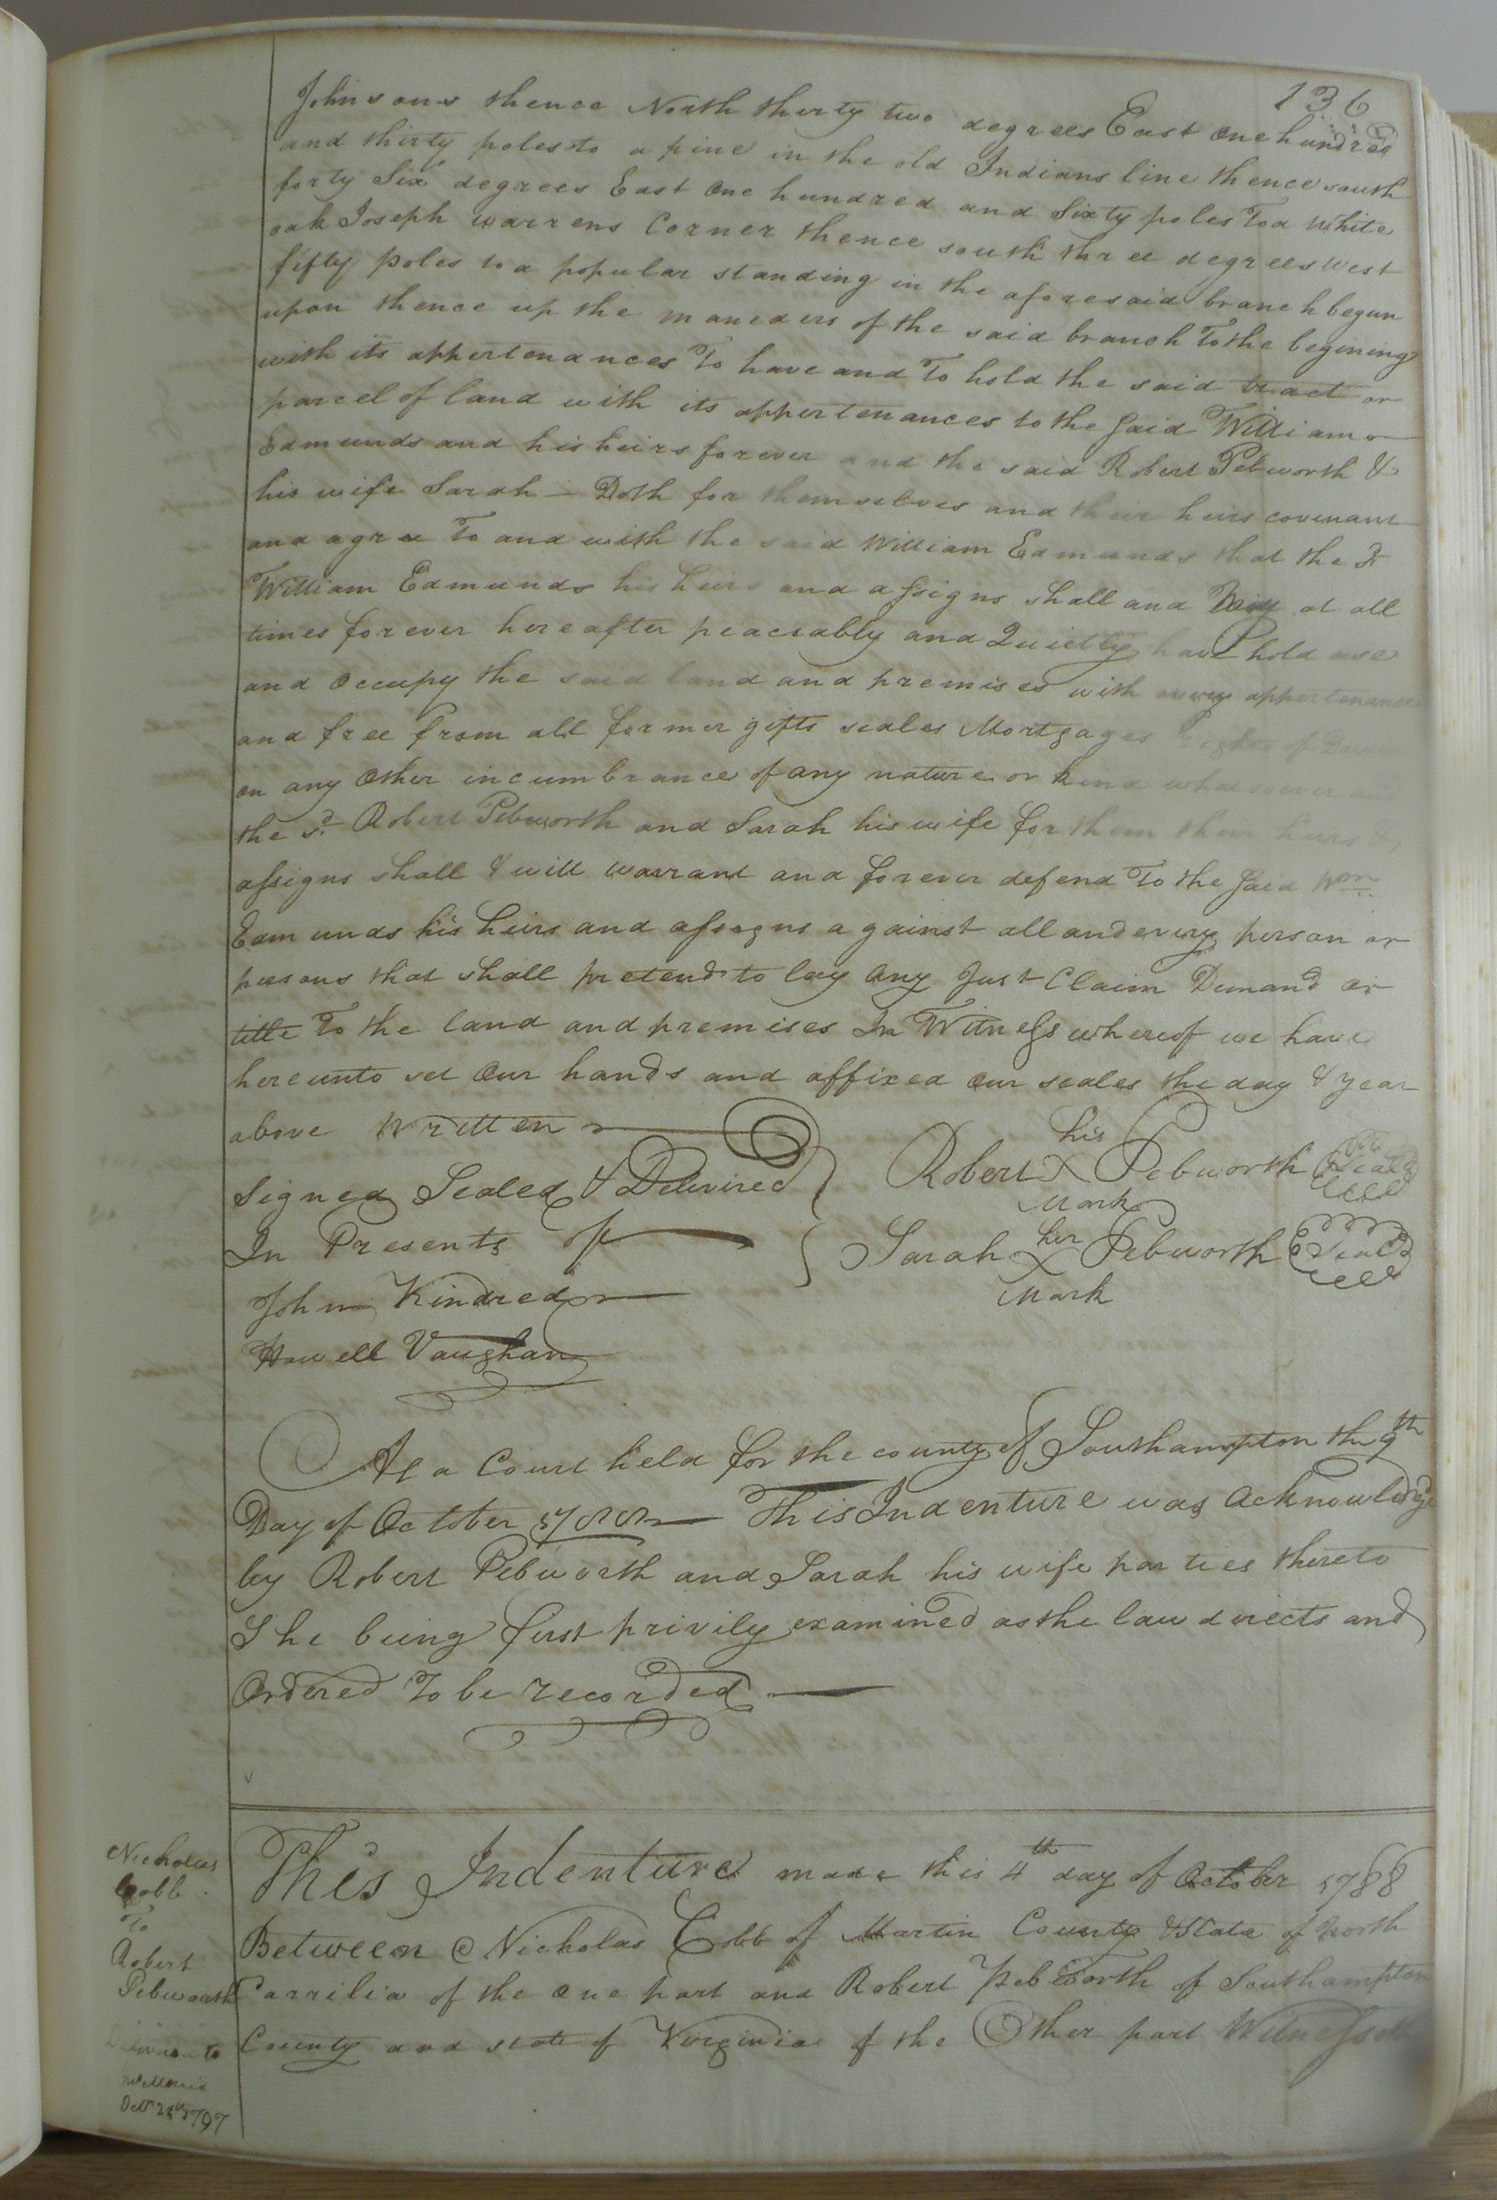 136
Johnsons thence North thirty two degrees East One hundred
and thirty poles to a pine in the old Indians line thence south
forty Six degrees East One hundred and Sixty poles To a White
oak Joseph Warrens Corner thence south three degrees West
fifty poles to a popular standing in the aforesaid branch begun
upon thence up the maneders of the said branch To the begining
with its appertenances To have and To hold the said tract or
parcel of land with its appertenances to the Said William
Edmunds and his heirs forever and the said Robert Pebworth &
his wife Sarah — Doth for themselves and their heirs covenant
and agree To and with the said William Edmunds that the sd
William Edmunds his heirs and assigns shall and May at all
times forever hereafter peaceably and Quietly have hold use
and Occupy the said land and premises with every appertenance
and free from all former gifts seales Mortgages rights of
on any Other incumbrance of any nature or kind whatsoever and
the sd. Robert Pebworth and Sarah his wife for them their heirs &
assigns shall & will warrant and forever defend To the Said Wm
Edmunds his heirs and assigns against all and every person or
persons that shall pretend to lay Any Just Claim Demand or
title To the land and premises In Witness whereof we have
hereunto set Our hands and affixed Our seales the day & year
above Written
Signed Sealed & Delivired
In Presents of
Robert his X Mark Pebworth Seal
Sarah her X Mark Pebworth Seal
John Kindred
Howell Vaughan
At a Court held for the county of Southampton the 9th
Day of October 1788 This Indenture was Acknowledg'd
by Robert Pebworth and Sarah his wife parties thereto
She being first privily examined as the law directs and
Ordered To be recorded
Nicholas
Cobb
To
Robert
Pebworth
to
Octr 24th 1797
This Indenture made this 4th day of October 1788
Between Nicholas Cobb of Martin County & State of North
Carrilia of the One part and Robert Pebworth of Southampton
County and state of Virginia of the Other part Witnesseth